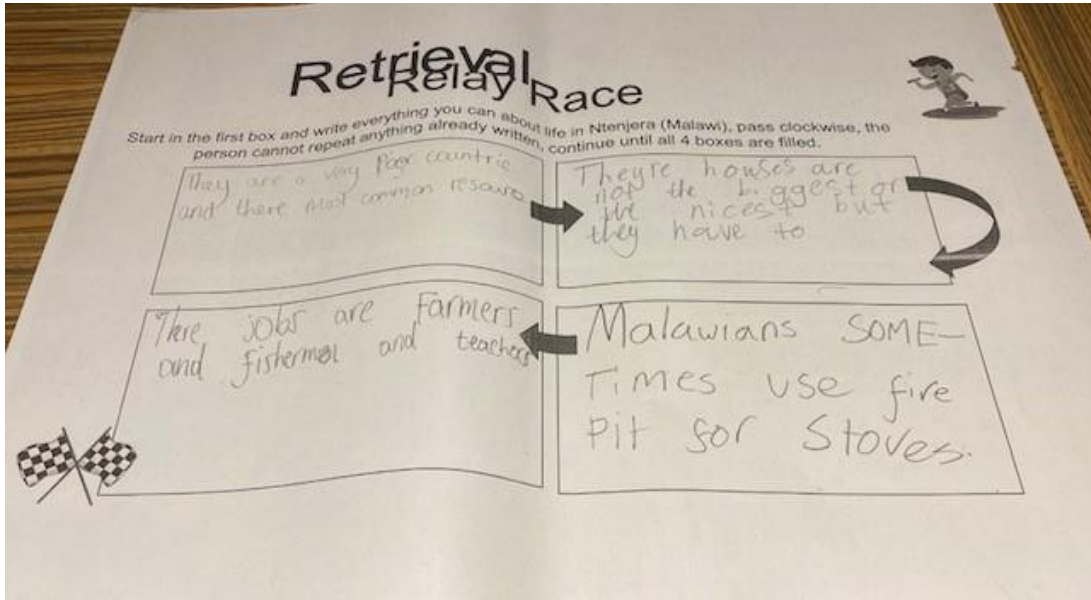 Retrieval
Relay Race
Start in the first box and write everything you can about life in Ntenjera (Malawi), pass clockwise, the
person cannot repeat anything already written, continue until all 4 boxes are filled.
They are a very Poor countrie
and there most common resource
Theyre houses are
not the biggest or
the nicest but
they have to
Malawians SOME-
Times use fire
Pit for Stoves.
There jobs are Farmers
and fishermen and teachers